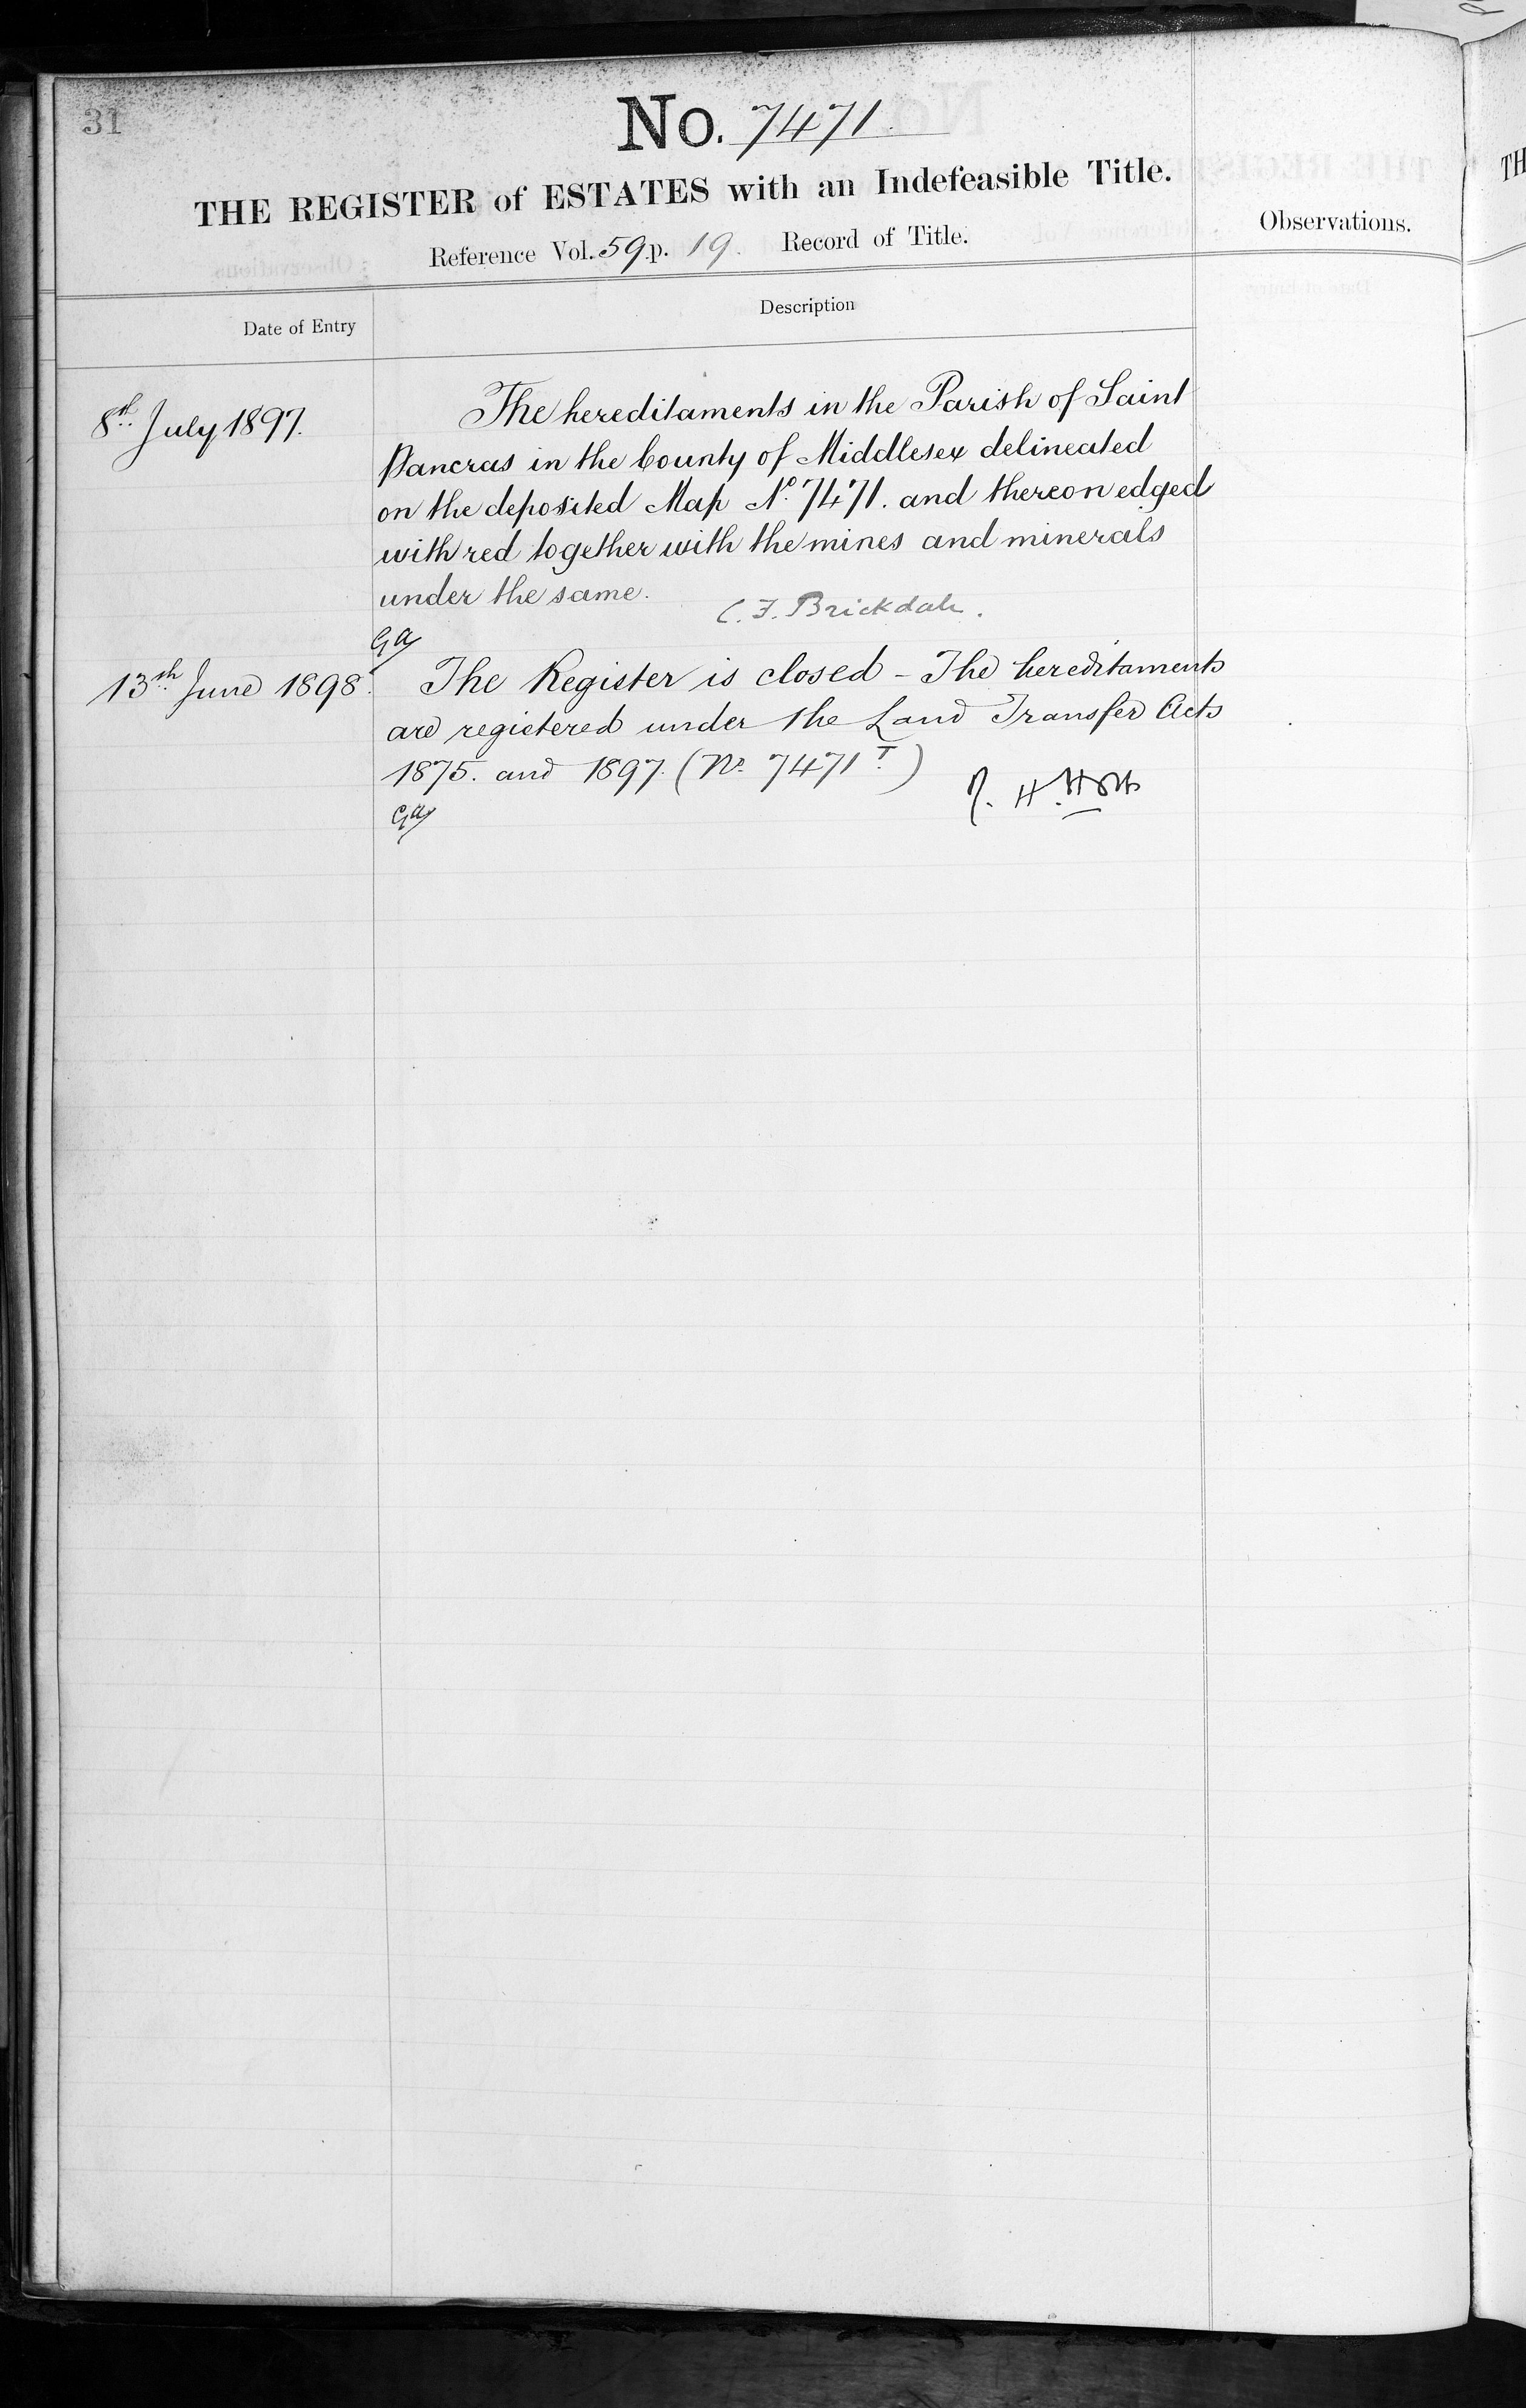 31
No. 7471.
THE REGISTER of ESTATES with an Indefeasible Title.
Reference Vol. 59 p. 19. Record of Title.
Observations.
Date of Entry
Description
8th July 1897.
The hereditaments in the Parish of Saint
Pancras in the County of Middlesex delineated
on the deposited Map No. 7471. and thereon edged
with red together with the mines and minerals
under the same.
C. F. Brickdale.
GA
13th June 1898.
The Register is closed - The hereditaments
are registered under the Land Transfer Acts
1875. and 1897. (No. 7471 T.)
GA
TH